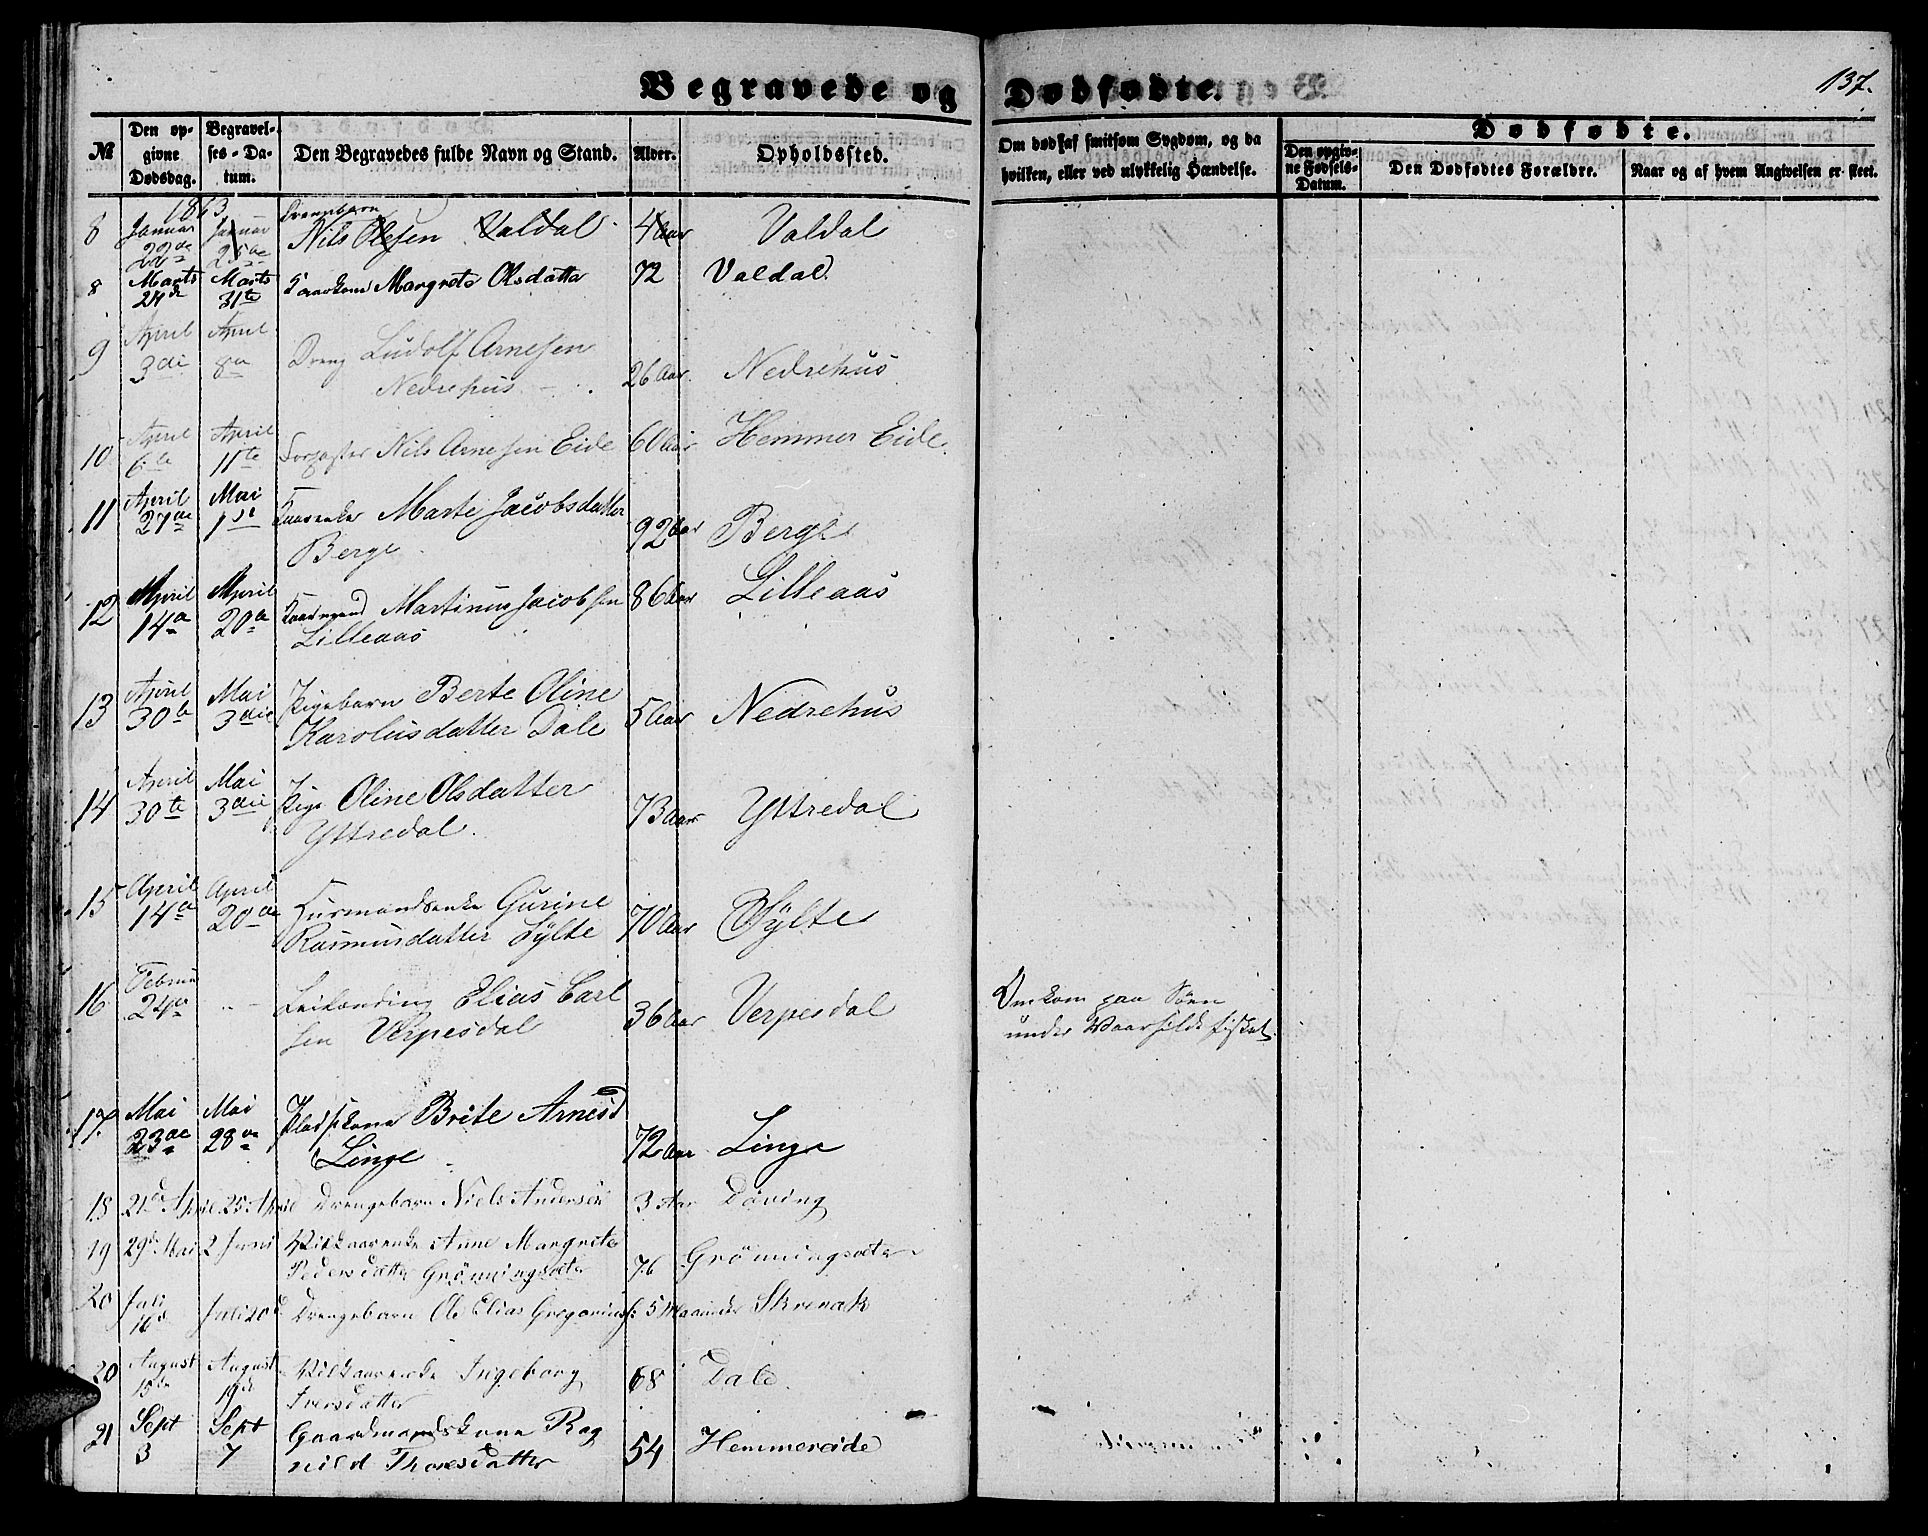 Begravede og Dødfødte.
137.
№ Den opgivne Dødsdag. Begravelses-Datum. Den Begravedes fulde Navn og Stand. Alder. Opholdssted. Om død af smitsom Sygdom, og da hvilken, eller ved ulykkelig Hændelse. Dødfødte. Den opgivne Fødsels-Datum. Den Dødfødtes Forældre. Naar og af hvem Angivelsen er skeet.
1863
Januar 22de Januar 25de Nils Olesen Valdal 4 Aar Valdal
8 Marts 24de Marts 31te Margrete Olsdatter 72 Valdal
9 April 3die April 8de Dreng Ludolf Arnesen
Nedrehus 26 Aar Nedrehus
10 April 6te April 11te Nils Arnesen Eide 60 Aar Hemmer Eide.
11 April 27de Mai 1ste Marte Jacobsdatter
Berge 92 Aar Berge
12 April 14de April 20de Kaarmand Martinus Jacobsen
Lilleaas 86 Aar Lilleaas
13 April 30te Mai 3die Pigebarn Berte Oline
Karolusdatter Dale 5 Aar Nedrehus
14 April 30te Mai 3die Pige Oline Olsdatter
Yttredal. 73 Aar Yttredal
15 April 14de April 20de Husmandsenke Gurine
Rasmusdatter Sylte 70 Aar Sylte
16 Februar 24de Elias Carl
sen Verpesdal 36 Aar Verpesdal Omkom paa Søen
under Vaarsildfisket.
17. Mai 23de Mai 28de Pladskone Brite Arnesd
Linge 72 Aar Linge
18 21de April 25 April Drengebarn Niels Andersen 3 Aar Døving
19 29de Mai 2 Juni Vilkaarenke Anne Margrete
Pedersdatter Grønningsæter 76 Grønningsæter
20 Juli 16de Juli 20de Drengebarn Ole Elias Gregoriuss: 5 Maaneder Skrenak
20 August 15de August 19de Vilkaarenke Ingeborg
Iversdatter 68 Dale
21 Sept 3 Sept 7 Gaardmandskone Rag
nild Thoresdatter 54 Hemmereide